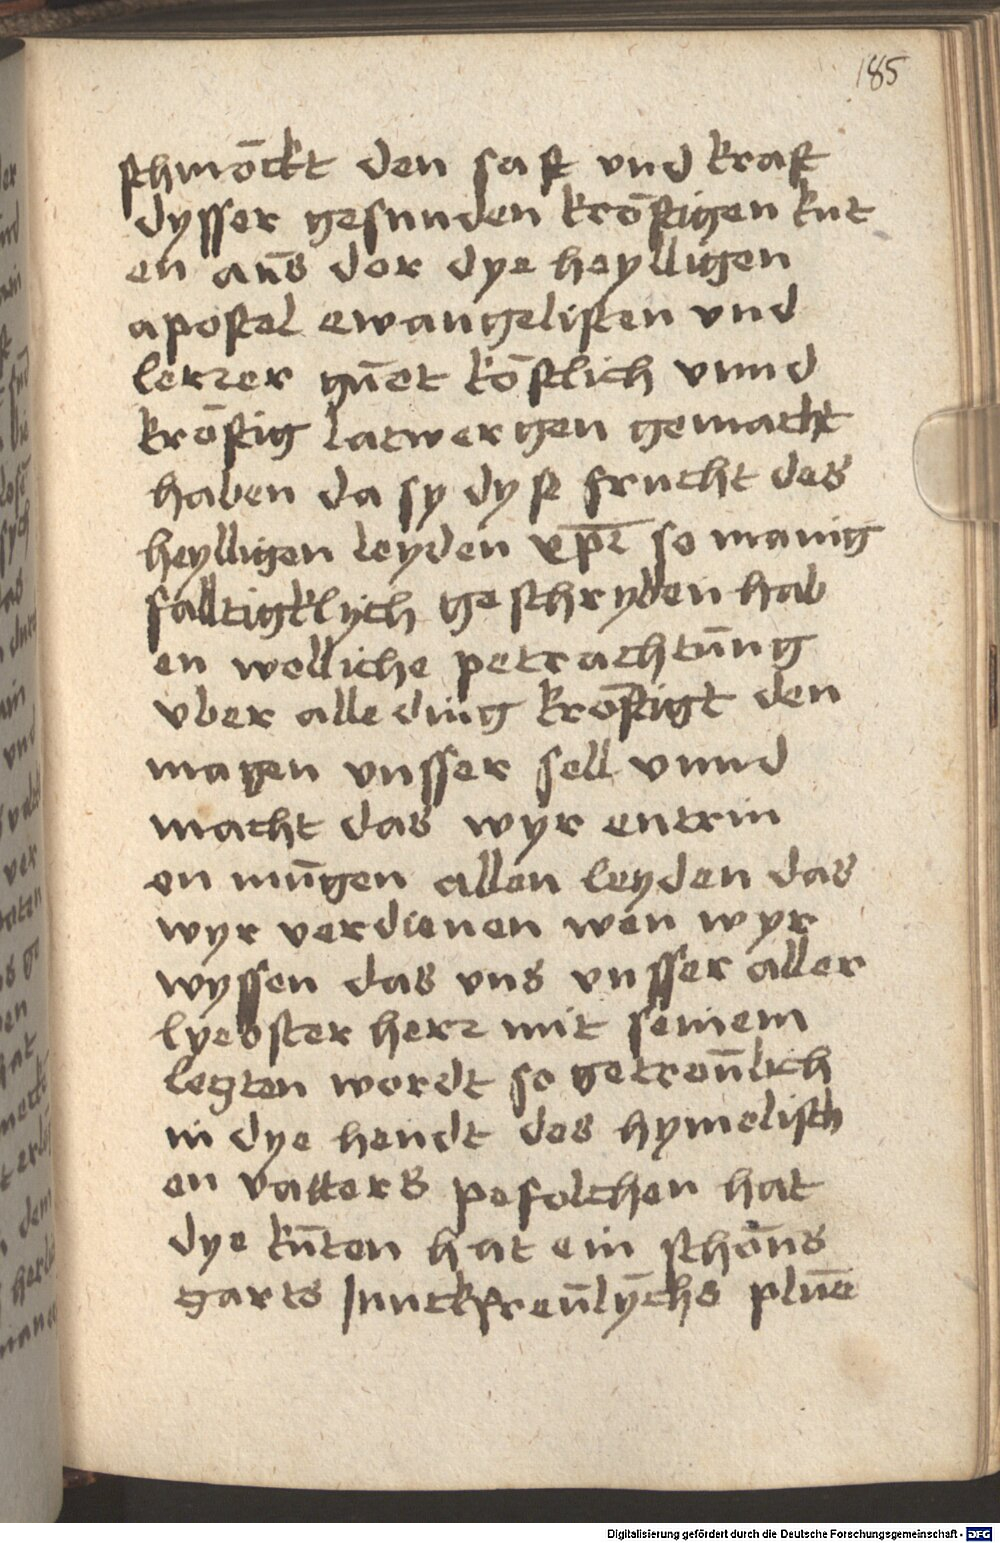 185
schmōckt den saft vnd kraft
dysser gesunden krōftigen kut
en aus̄ der dye heylligen
apostel ewangelisten vnd
lerrer gūet kōstlich vnnd
krōftig latwergen gemacht
haben da sy dyse frucht des
heylligen leyden xp̄i so manig
falltigklych geschryben hab
en welliche petrachtūng
vber alle ding krōftigt den
magen vnsser sell vnnd
macht das wyr entrin
en mūgen allen leyden das
wyr verdienen wen wyr
wyssen das vns vnsser aller
lyebster herr mit seinem
legten wordt so getreūlich
in dye hendt des hymelisch
en vatters pefolchen hat
dye kūten hat ein schōns
garts Junckfreūlychs plūe
Digitalisierung gefördert durch die Deutsche Forschungsgemeinschaft - DFG